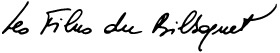 Les Films du Bilboquet